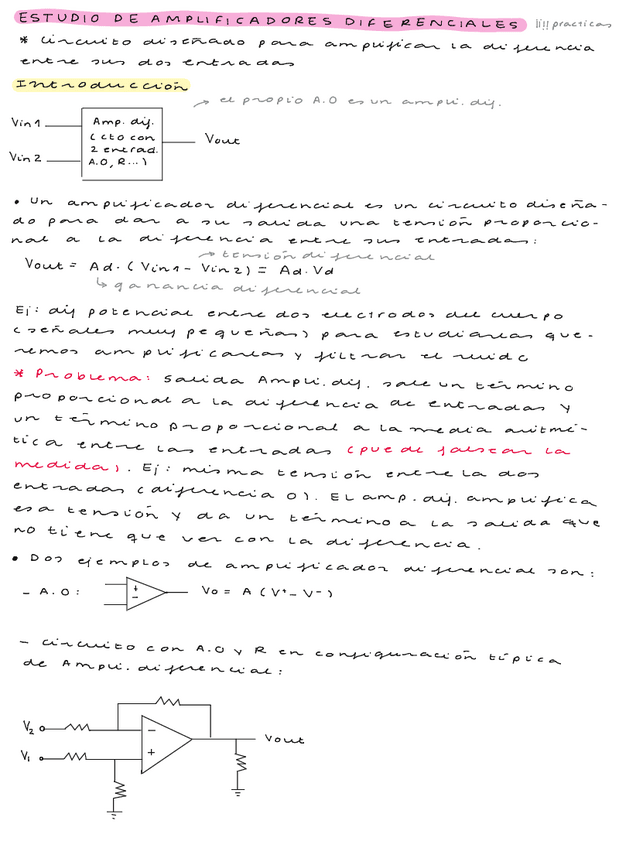 ESTUDIO DE AMPLIFICADORES DIFERENCIALES practicas
* circuito diseñado para amplificar la diferencia
entre sus dos entradas
Introducción
el propio A.O es un ampli. dif.
Vin 1
Amp. dif.
(cto con
2 entrad.
A.O, R...)
Vout
Vin 2
• Un amplificador diferencial es un circuito diseña-
do para dar a su salida una tensión proporcio-
nal a la diferencia entre sus entradas:
tensión diferencial
Vout = Ad. (Vin1 - Vin2) = Ad. Vd
ganancia diferencial
Ej: dif potencial entre dos electrodos del cuerpo
(señales muy pequeñas) para estudiarlas que-
remos amplificarlas y filtrar el ruido
* Problema: Salida Ampli. dif. sale un término
proporcional a la diferencia de entradas y
un término proporcional a la media aritmé-
tica entre las entradas (puede falsear la
medida). Ej: misma tensión entre la dos
entradas (diferencia 0). El amp. dif. amplifica
esa tensión y da un término a la salida que
no tiene que ver con la diferencia.
• Dos ejemplos de amplificador diferencial son:
- A.O: + - Vo = A (V⁺ - V⁻)
- circuito con A.O y R en configuración típica
de Ampli. diferencial:
V₂
-
Vout
V₁
+